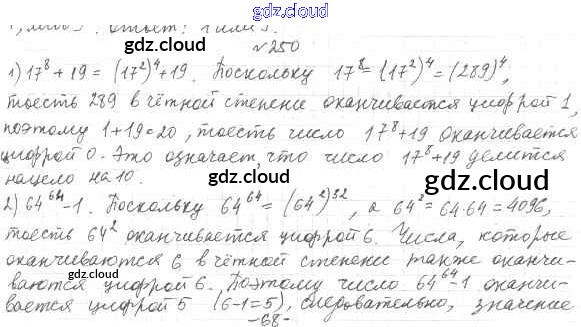 Ответ: 1 или 3.
gdz.cloud
№250
gdz.cloud
gdz.cloud
1) 17⁸+19=(17²)⁴+19. Поскольку 17⁸=(17²)⁴=(289)⁴,
тоесть 289 в чётной степени оканчивается цифрой 1,
поэтому 1+19=20, тоесть число 17⁸+19 оканчивается
цифрой 0. Это означает, что число 17⁸+19 делится
нацело на 10.
gdz.cloud
gdz.cloud
2) 64⁶⁴-1. Поскольку 64⁶⁴=(64²)³², а 64²=64·64=4096,
тоесть 64² оканчивается цифрой 6. Числа, которые
оканчиваются 6 в чётной степени также оканчи-
ваются цифрой 6. Поэтому число 64⁶⁴-1 оканчи-
вается цифрой 5 (6-1=5), следовательно, значение
gdz.cloud
-68-
gdz.cloud